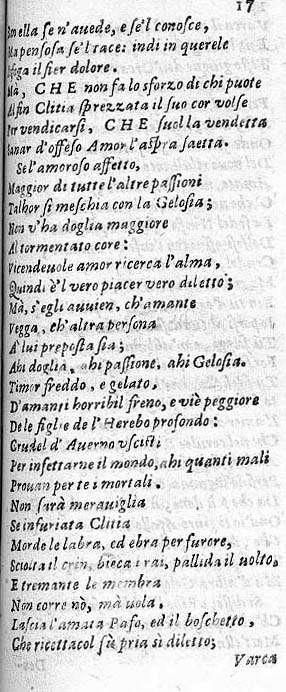 17
Ben ella se n'auede, e se'l conosce,
Ma pensosa se'l tace: indi in querele
Isfoga il fier dolore.
Mà, CHE non fa lo sforzo di chi puote
Al fin Clitia sprezzata il suo cor volse
Per vendicarsi, CHE suol la vendetta
Sanar d'offeso Amor l'aspra saetta.
Se l'amoroso affetto,
Maggior di tutte l'altre passioni
Talhor si meschia con la Gelosia;
Non v'ha doglia maggiore
Al tormentato core:
Vicendeuole amor ricerca l'alma,
Quindi è'l vero piacer vero diletto;
Mà, s'egli auuien, ch'amante
Vegga, ch'altra persona
A' lui preposta sia;
Ahi doglia, ahi passione, ahi Gelosia.
Timor freddo, e gelato,
D'amanti horribil freno, e viè peggiore
Dele figlie de l'Herebo profondo:
Crudel d'Auerno uscisti
Per infettarne il mondo, ahi quanti mali
Prouan per te i mortali.
Non sarà merauiglia
Se infuriata Clitia
Morde le labra, ed ebra per furore,
Sciolta il crin, bieca i rai, pallida il uolto,
E tremante le membra
Non corre nò, mà uola.
Lascia l'amata Pafo, ed il boschetto,
Che ricettacol fù pria sì diletto;
Varca